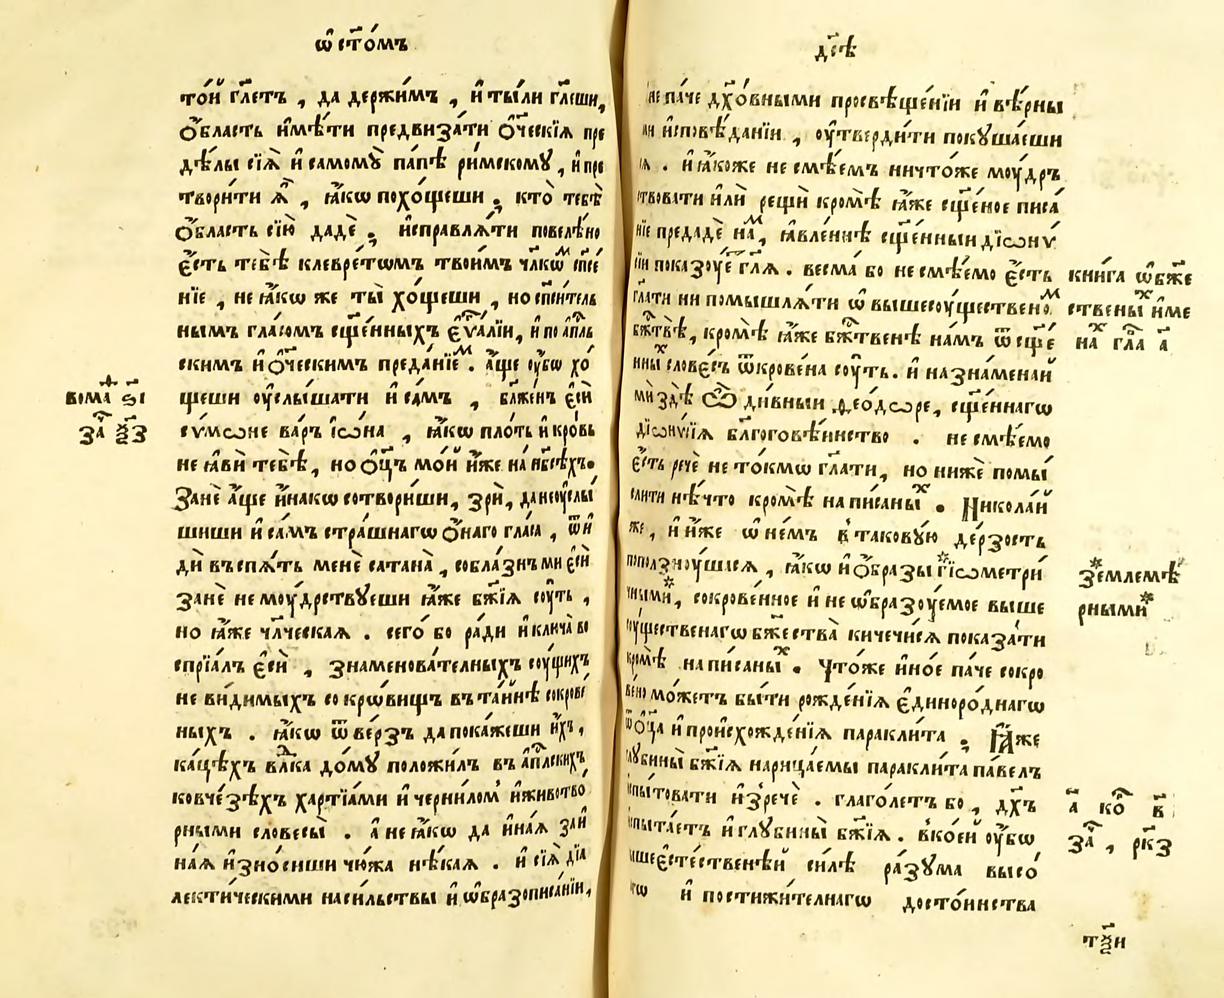 ѡ҆ ст҃о́мъ
то́й гл҃етъ , да держи́мъ , и҆ ты́ли гл҃еши,
ѻ҆́бласть и҆мѣ́ти предвиза́ти ѻ҆́ч҃ескїѧ пре
дѣ́лы сїѧ̀ и҆ самомꙋ̀ па́пѣ ри́мскомꙋ , и҆ пре
твори́ти ѧ҆̀ , ꙗ҆́кѡ похо́щеши ; кто̀ тебѣ̀
ѻ҆́бласть сїю̀ дадѐ ; и҆справлѧ́ти повелѣ́но
є҆́сть тебѣ̀ клевре́тѡмъ твои́мъ чл҃кѡ́ⷨ сп҃се́
нїе , не ꙗ҆́кѡ же ты̀ хо́щеши , но сп҃си́тель
нымъ гла́сомъ сщ҃е́нныхъ є҆ѵ҃а́лїи, и҆ по а҆пⷭ҇ль
скимъ и҆ ѻ҆́ч҃ескимъ преда́нїеⷨ . а҆́ще ᲂу҆́бѡ хо́
щеши ᲂу҆слы́шати и҆ са́мъ , бл҃же́нъ є҆сѝ
сѵ́мѡне ва́ръ і҆ѡ́на , ꙗ҆́кѡ пло́ть и҆ кро́вь
не ꙗ҆вѝ тебѣ̀ , но ѻ҆ц҃ъ мо́й и҆́же на нб҃сѣ́хъ.
Занѐ а҆́ще и҆́накѡ сотвори́ши, зрѝ, да не ᲂу҆слы́
шиши и҆ са́мъ стра́шнагѡ ѻ҆́наго гла́са , ѿи
дѝ въспѧ́ть менѐ сатана̀ , собла́знъ ми є҆сѝ
занѐ не моу́дрствꙋеши ꙗ҆́же бж҃їѧ соу́ть ,
но ꙗ҆́же чл҃ческаѧ . сего́ бо ра́ди и҆ клича̀ во
спрїа́лъ є҆сѝ , знаменова́телныхъ соу́щихъ
не ви́димыхъ сокрѡ́вищъ въ та́йнѣ сокрове́
ныхъ . ꙗ҆́кѡ ѿве́рзъ да пока́жеши и҆́хъ ,
ка́цѣхъ влⷣка до́мꙋ положи́лъ въ а҆пⷭ҇лскихъ
ковче́зѣхъ ха́ртїами и҆ черни́лом и҆ живство
рными словесы̀ . а҆ не ꙗ҆́кѡ да и҆на́ѧ заи
на́ѧ и҆зно́сиши чю́жа нѣ́каѧ . и҆ сїѧ̀ дїа
лекти́ческими наси́льствы и҆ ѡ҆бразописа́нїи,
вома̀ ѕ҃і
за̀ ѯ҃з
дс҃ѣ
не па́че дх҃о́вными просвѣще́нїи и҆ вѣ́рны
ми и҆сповѣ́данїи , ᲂу҆тверди́ти покꙋша́еши
ѧ . и҆ ꙗ҆́коже не смѣ́емъ ничто́же моу́дръ
ствовати и҆лѝ рещѝ кромѣ̀ ꙗ҆́же сщ҃е́ное писа́
нїе предадѐ на́ⷨ, ꙗ҆вле́ннѣ сщ҃е́нныи дїѡнѵ́
сїи показоу́е гл҃ѧ . весма̀ бо не смѣ́емо є҆́сть
гл҃ати ни помышлѧ́ти ѡ҆ вышесоу́ществено́ⷨ
бж҃твѣ̀, кромѣ̀ ꙗ҆́же бж҃твенѣ на́мъ ѿ сщ҃е́
нныⷯ слове́съ ѿкрове́на соу́ть. и҆ назна́менай
ми здѣ̀ ѽ ди́вныи ѳео́дѡре, сщ҃е́ннагѡ
дїѡнѵ́сїѧ бл҃гоговѣ́инство . не смѣ́емо
є҆́сть речѐ не то́кмѡ гл҃ати, но нижѐ помы́
слити нѣ́что кромѣ̀ на́писаныⷯ . Никола́й
же , и҆ и҆́же ѡ҆ не́мъ в̾ такову́ю де́рзость
поползноу́шасѧ , ꙗ҆́кѡ и҆ ѻ҆́бразы *гїѡметри́
чными*, сокрове́нное и҆ не ѡ҆бразоу́емое выше
соу́щественагѡ бж҃ества̀ кичечи́сѧ показа́ти
кромѣ̀ на́писаныⷯ . Что́же и҆но́е па́че сокро
ве́но мо́жетъ бы́ти рожде́нїѧ є҆диноро́днагѡ
ѿ ѻ҆ц҃а и҆ происхожде́нїѧ паракли́та ; Ꙗ҆́же
глꙋбины̀ бж҃їѧ нарица́емы паракли́та па́велъ
и҆спы́товати и҆зречѐ . глаго́летъ бо , дх҃ъ
и҆спыта́етъ и҆ глꙋбины̀ бж҃їѧ . в̾ ко́ей ᲂу҆́бѡ
вышеєсте́ственѣй си́лѣ ра́зꙋма высо́
кагѡ и҆ постижи́телнагѡ досто́инства
кни́га ѡ҆ бж҃е
ственыⷯ и҆ме
наⷯ гл҃а а҃
*землемѣ́
рными*
а҃ коⷬ҇ в҃
за̀ , рк҃з
тѯ҃и